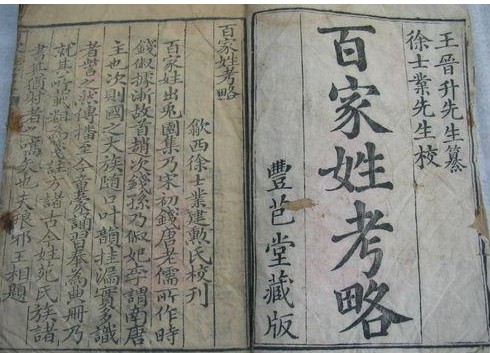 王晉升先生纂
徐士業先生校
百家姓考略
豐芑堂藏版
百家姓考略
歙西徐士業建勳氏校刊
百家姓出兎園集乃宋初錢唐老儒所作時
錢俶據浙故首趙次錢孫乃俶妃李謂南唐
主也次則國之大族隨口叶韻挂漏實多識
者訾之然傳播至今童蒙誦習奉為典冊乃
就其箋註方諸古今姓苑氏族諸
書其猶射者之嚆矢也夫琅邪王相題